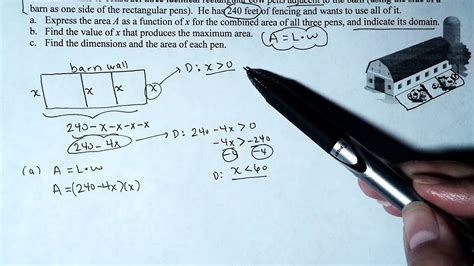 three identical rectangular cow pens adjacent to the barn (using the side of a
barn as one side of the rectangular pens). He has 240 feet of fencing and wants to use all of it.
a. Express the area A as a function of x for the combined area of all three pens, and indicate its domain.
b. Find the value of x that produces the maximum area.
c. Find the dimensions and the area of each pen.
A = L·W
barn wall
x x x x
D: x > 0
240-x-x-x-x
240-4x
D: 240-4x > 0
-4x > -240
-4 -4
D: x < 60
(a) A = L·W
A = (240-4x)(x)